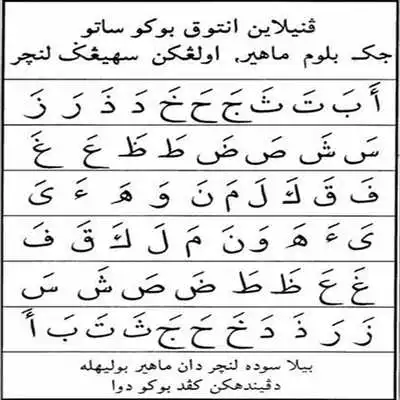 ڤنيلاين انتوق بوكو ساتو
جک بلوم ماهير، اولڠكن سهيڠݢ لنچر
أَ بَ تَ ثَ جَ حَ خَ دَ ذَ رَ زَ
سَ شَ صَ ضَ طَ ظَ عَ غَ
فَ قَ كَ لَ مَ نَ وَ هَ ءَ يَ
يَ ءَ هَ وَ نَ مَ لَ كَ قَ فَ
غَ عَ ظَ طَ ضَ صَ شَ سَ
زَ رَ ذَ دَ خَ حَ جَ ثَ تَ بَ أَ
بيلا سوده لنچر دان ماهير بوليهله
دڤيندهكن كڤد بوكو دوا